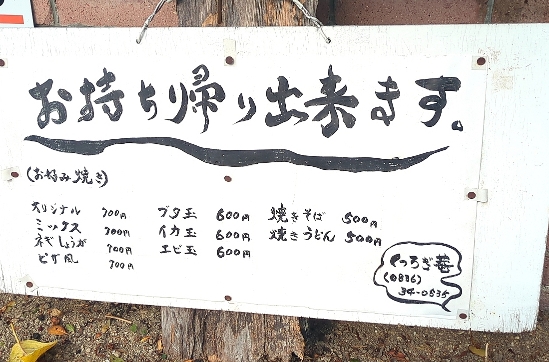 お持ち帰り出来ます。
(お好み焼き)
オリジナル 700円 ブタ玉 600円 焼きそば 500円
ミックス 700円 イカ玉 600円 焼きうどん 500円
ネギしょうが 700円 エビ玉 600円
ピザ風 700円
くつろぎ菴
(0836)
34-0835